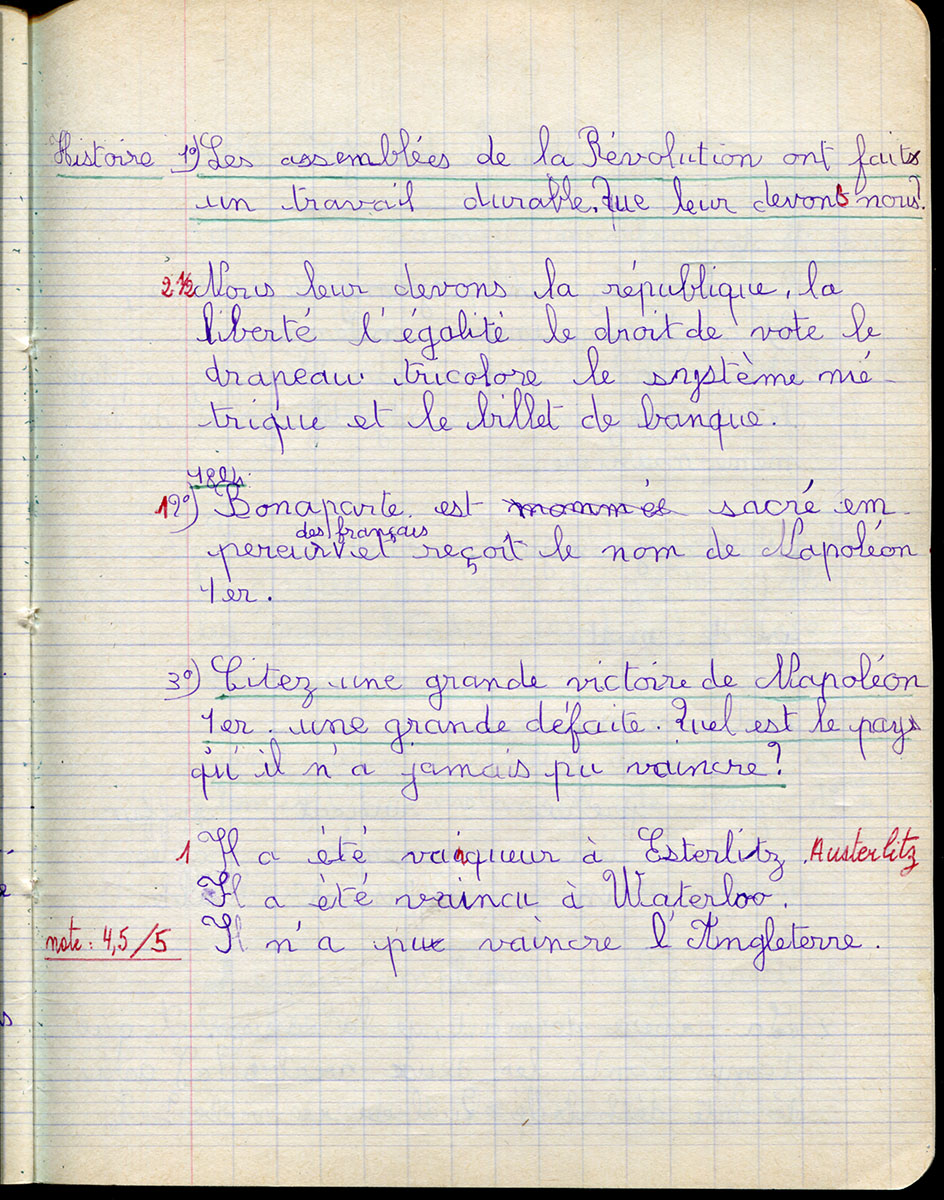 Histoire 1°) Les assemblées de la Révolution ont faits
un travail durable. Que leur devons nous?
2 ½ Nous leur devons la république, la
liberté l'égalité le droit de vote le
drapeau tricolore le système mé-
trique et le billet de banque.
1804
1 2°) Bonaparte est nommée sacré em
des français
pereur et reçoit le nom de Napoléon
1er.
3°) Citez une grande victoire de Napoléon
1er. une grande défaite. Quel est le pays
qu'il n'a jamais pu vaincre?
1 Il a été vainqueur à Esterlitz. Austerlitz
Il a été vaincu à Waterloo.
note: 4,5/5 Il n'a pu vaincre l'Angleterre.